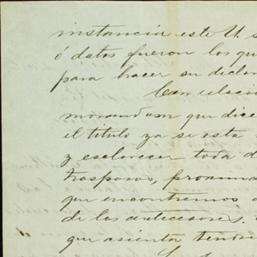 instancia este U. s
ó datos fueron los qu
para hacer su declar
Con relació
morandum que dice
el titulo ya se esta
y esclarecer toda d
traspasos,
que encontremos
de los antecesores,
que asienta